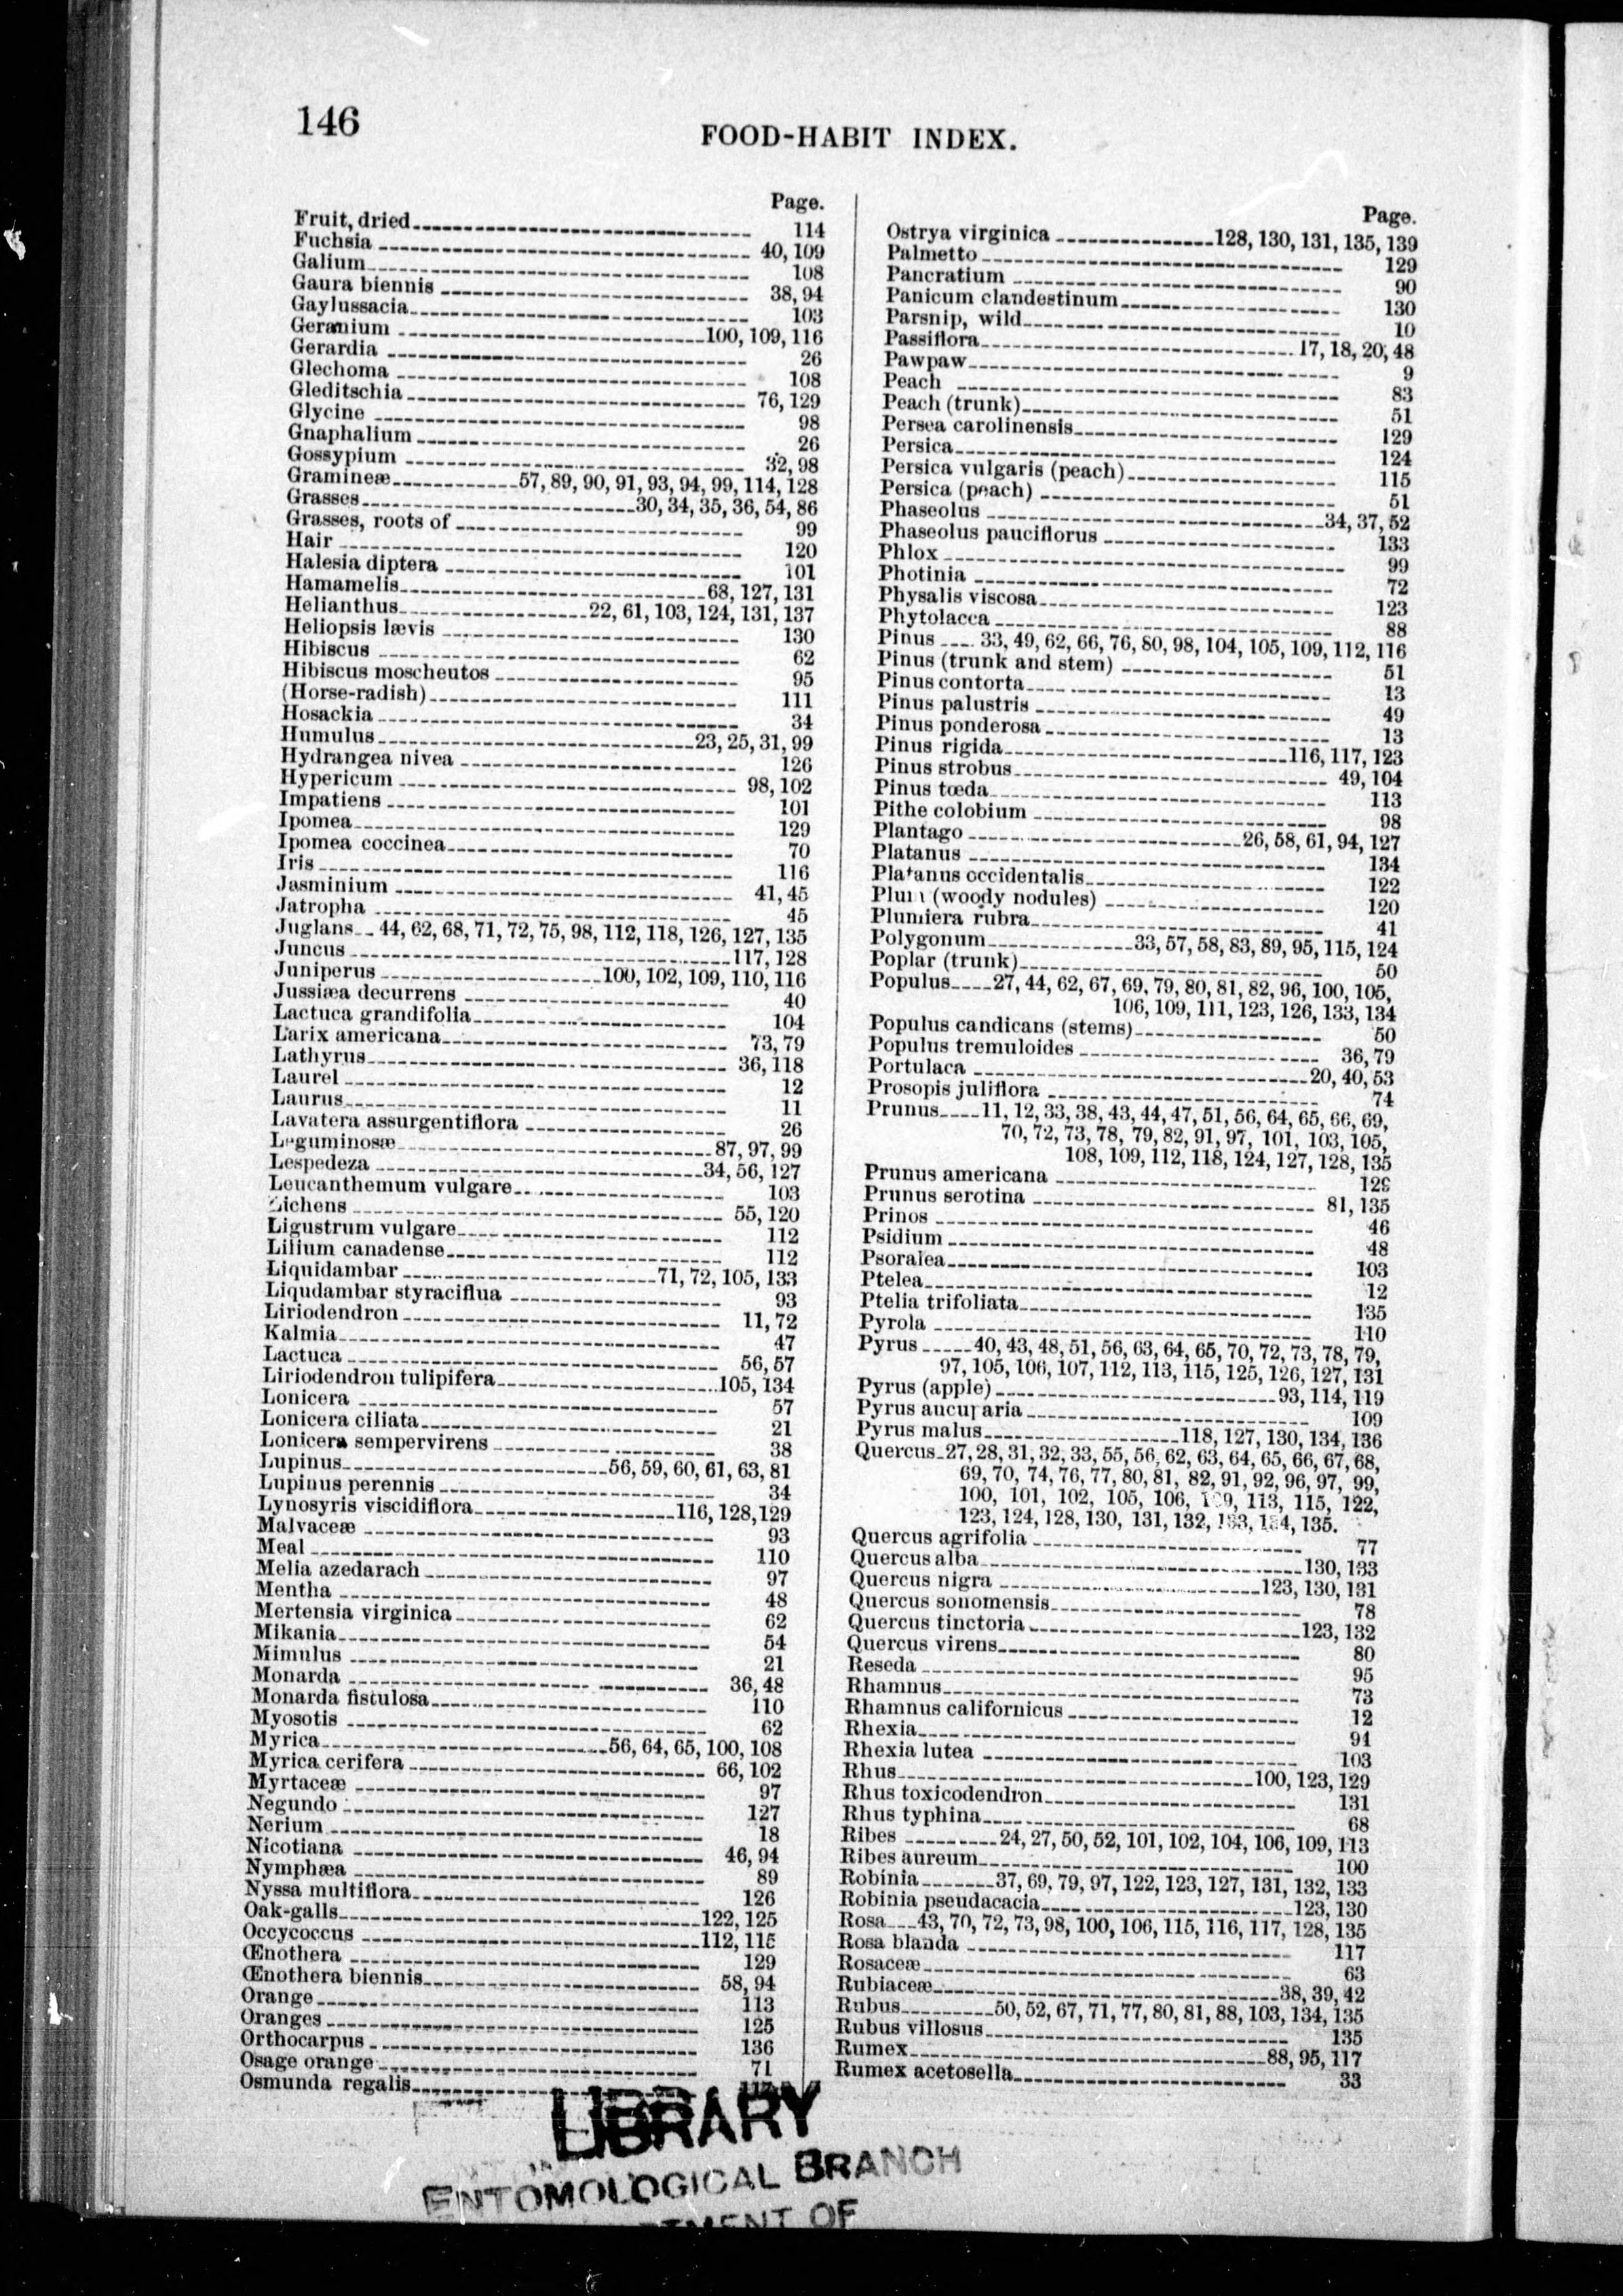 146
FOOD-HABIT INDEX.
Page.
Fruit, dried 114
Fuchsia 40, 109
Galium 108
Gaura biennis 38, 94
Gaylussacia 103
Geranium 100, 109, 116
Gerardia 26
Glechoma 108
Gleditschia 76, 129
Glycine 98
Gnaphalium 26
Gossypium 32, 98
Gramineæ 57, 89, 90, 91, 93, 94, 99, 114, 128
Grasses 30, 34, 35, 36, 54, 86
Grasses, roots of 99
Hair 120
Halesia diptera 101
Hamamelis 68, 127, 131
Helianthus 22, 61, 103, 124, 131, 137
Heliopsis lævis 130
Hibiscus 62
Hibiscus moscheutos 95
(Horse-radish) 111
Hosackia 34
Humulus 23, 25, 31, 99
Hydrangea nivea 126
Hypericum 98, 102
Impatiens 101
Ipomea 129
Ipomea coccinea 70
Iris 116
Jasminium 41, 45
Jatropha 45
Juglans 44, 62, 68, 71, 72, 75, 98, 112, 118, 126, 127, 135
Juncus 117, 128
Juniperus 100, 102, 109, 110, 116
Jussiæa decurrens 40
Lactuca grandifolia 104
Larix americana 73, 79
Lathyrus 36, 118
Laurel 12
Laurus 11
Lavatera assurgentiflora 26
Leguminosæ 87, 97, 99
Lespedeza 34, 56, 127
Leucanthemum vulgare 103
Lichens 55, 120
Ligustrum vulgare 112
Lilium canadense 112
Liquidambar 71, 72, 105, 133
Liqudambar styraciflua 93
Liriodendron 11, 72
Kalmia 47
Lactuca 56, 57
Liriodendron tulipifera 105, 134
Lonicera 57
Lonicera ciliata 21
Lonicera sempervirens 38
Lupinus 56, 59, 60, 61, 63, 81
Lupinus perennis 34
Lynosyris viscidiflora 116, 128, 129
Malvaceæ 93
Meal 110
Melia azedarach 97
Mentha 48
Mertensia virginica 62
Mikania 54
Mimulus 21
Monarda 36, 48
Monarda fistulosa 110
Myosotis 62
Myrica 56, 64, 65, 100, 108
Myrica cerifera 66, 102
Myrtaceæ 97
Negundo 127
Nerium 18
Nicotiana 46, 94
Nymphæa 89
Nyssa multiflora 126
Oak-galls 122, 125
Occycoccus 112, 115
Œnothera 129
Œnothera biennis 58, 94
Orange 113
Oranges 125
Orthocarpus 136
Osage orange 71
Osmunda regalis
Page.
Ostrya virginica 128, 130, 131, 135, 139
Palmetto 129
Pancratium 90
Panicum clandestinum 130
Parsnip, wild 10
Passiflora 17, 18, 20, 48
Pawpaw 9
Peach 83
Peach (trunk) 51
Persea carolinensis 129
Persica 124
Persica vulgaris (peach) 115
Persica (peach) 51
Phaseolus 34, 37, 52
Phaseolus pauciflorus 133
Phlox 99
Photinia 72
Physalis viscosa 123
Phytolacca 88
Pinus 33, 49, 62, 66, 76, 80, 98, 104, 105, 109, 112, 116
Pinus (trunk and stem) 51
Pinus contorta 13
Pinus palustris 49
Pinus ponderosa 13
Pinus rigida 116, 117, 123
Pinus strobus 49, 104
Pinus tœda 113
Pithe colobium 98
Plantago 26, 58, 61, 94, 127
Platanus 134
Platanus occidentalis 122
Plum (woody nodules) 120
Plumiera rubra 41
Polygonum 33, 57, 58, 83, 89, 95, 115, 124
Poplar (trunk) 50
Populus 27, 44, 62, 67, 69, 79, 80, 81, 82, 96, 100, 105,
106, 109, 111, 123, 126, 133, 134
Populus candicans (stems) 50
Populus tremuloides 36, 79
Portulaca 20, 40, 53
Prosopis juliflora 74
Prunus 11, 12, 33, 38, 43, 44, 47, 51, 56, 64, 65, 66, 69,
70, 72, 73, 78, 79, 82, 91, 97, 101, 103, 105,
108, 109, 112, 118, 124, 127, 128, 135
Prunus americana
Prunus serotina 81, 135
Prinos 46
Psidium 48
Psoralea 103
Ptelea 12
Ptelia trifoliata 135
Pyrola 110
Pyrus 40, 43, 48, 51, 56, 63, 64, 65, 70, 72, 73, 78, 79,
97, 105, 106, 107, 112, 113, 115, 125, 126, 127, 131
Pyrus (apple) 93, 114, 119
Pyrus aucuparia 109
Pyrus malus 118, 127, 130, 134, 136
Quercus 27, 28, 31, 32, 33, 55, 56, 62, 63, 64, 65, 66, 67, 68,
69, 70, 74, 76, 77, 80, 81, 82, 91, 92, 96, 97, 99,
100, 101, 102, 105, 106, 109, 113, 115, 122,
123, 124, 128, 130, 131, 132, 133, 134, 135.
Quercus agrifolia 77
Quercus alba 130, 133
Quercus nigra 123, 130, 131
Quercus sonomensis 78
Quercus tinctoria 123, 132
Quercus virens 80
Reseda 95
Rhamnus 73
Rhamnus californicus 12
Rhexia 94
Rhexia lutea 103
Rhus 100, 123, 129
Rhus toxicodendron 131
Rhus typhina 68
Ribes 24, 27, 50, 52, 101, 102, 104, 106, 109, 113
Ribes aureum 100
Robinia 37, 69, 79, 97, 122, 123, 127, 131, 132, 133
Robinia pseudacacia 123, 130
Rosa 43, 70, 72, 73, 98, 100, 106, 115, 116, 117, 128, 135
Rosa blanda 117
Rosaceæ 63
Rubiaceæ 38, 39, 42
Rubus 50, 52, 67, 71, 77, 80, 81, 88, 103, 134, 135
Rubus villosus 135
Rumex 88, 95, 117
Rumex acetosella 33
LIBRARY
ENTOMOLOGICAL BRANCH
OF